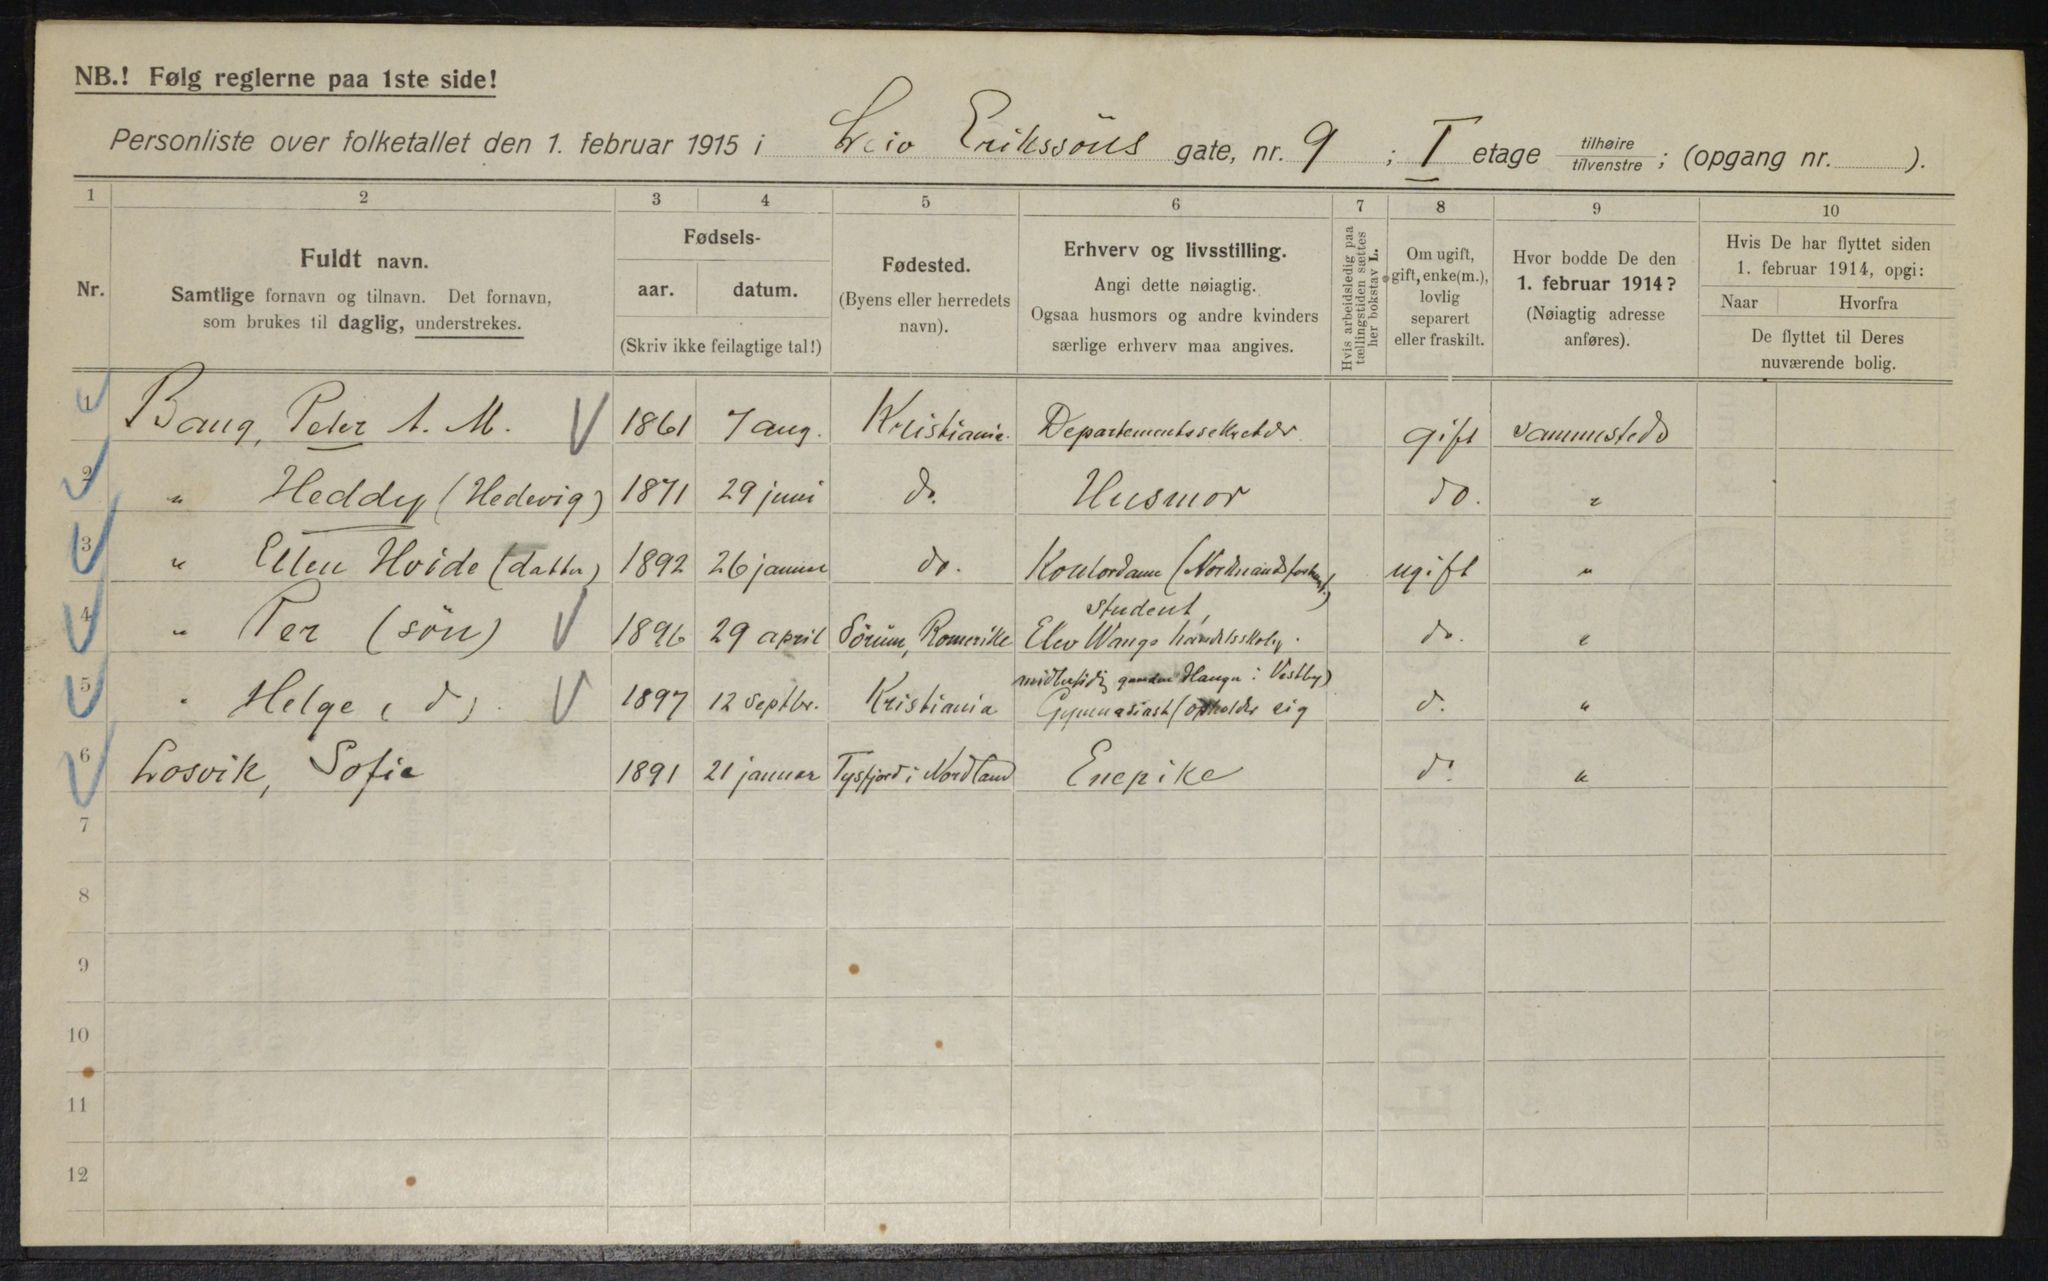 NB.! Følg reglerne paa 1ste side!
Personliste over folketallet den 1. februar 1915 i Leiv Erikssöns gate, nr. 9 ; I etage tilhøire tilvenstre ; (opgang nr. ).
1 2 3 4 5 6 7 8 9 10
Nr.
Fuldt navn.
Samtlige fornavn og tilnavn. Det fornavn,
som brukes til daglig, understrekes.
Fødsels-
aar. datum.
(Skriv ikke feilagtige tal!)
Fødested.
(Byens eller herredets
navn).
Erhverv og livsstilling.
Angi dette nøiagtig.
Ogsaa husmors og andre kvinders
særlige erhverv maa angives.
Hvis arbeidsledig paa
tællingstiden sættes
her bokstav L.
Om ugift,
gift, enke(m.),
lovlig
separert
eller fraskilt.
Hvor bodde De den
1. februar 1914?
(Nøiagtig adresse
anføres).
Hvis De har flyttet siden
1. februar 1914, opgi:
Naar Hvorfra
De flyttet til Deres
nuværende bolig.
1 Bang, Peter A. M. 1861 7 aug. Kristiania. Departementssekretær gift sammesteds
2 " Heddy (Hedevig) 1871 29 juni do. Husmor do. "
3 " Ellen Hvide (datter) 1892 26 januar do. Kontordame ( ugift "
student,
4 " Per (sön) 1896 29 april Sörum, Romerike Elev Wangs handelsskole. do. "
midlertidig Haugen i Vestby)
5 " Helge ( d ) 1897 12 septbr. Kristiania Gymnasiast (opholder sig d. "
6 Losvik, Sofie 1891 21 januar Tysfjord i Nordland Enepike do "
7
8
9
10
11
12